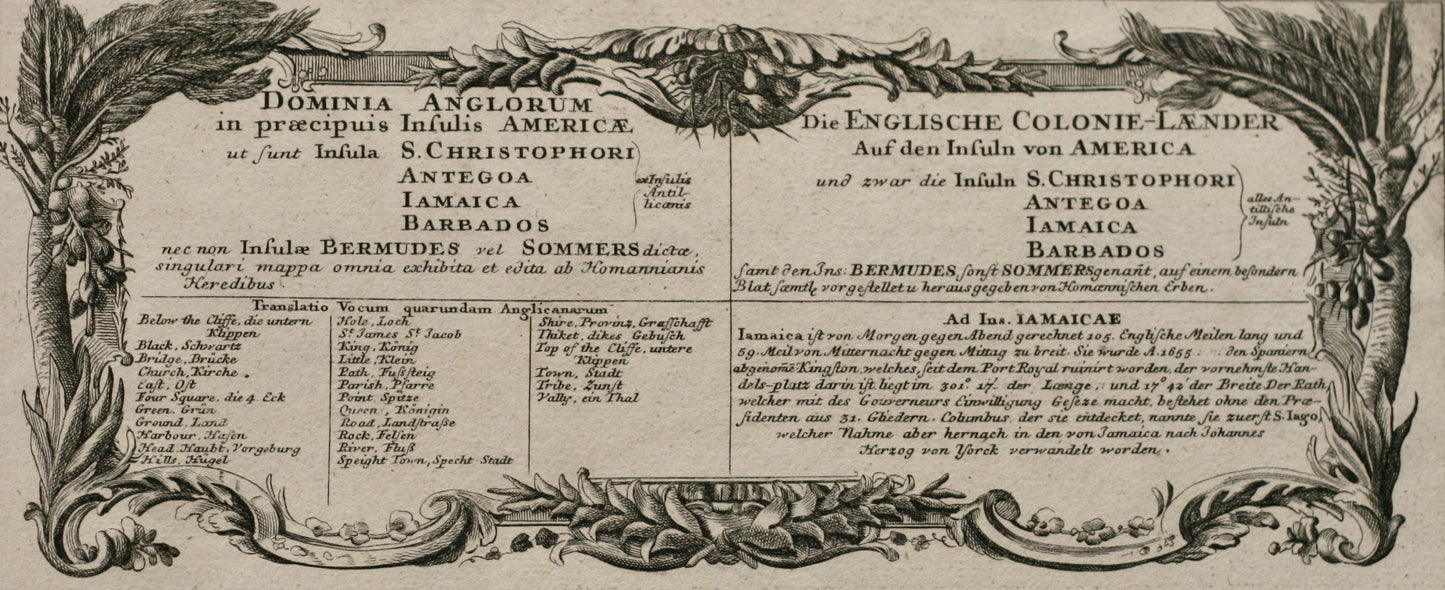 DOMINIA ANGLORUM
in præcipuis Inſulis AMERICÆ
ut ſunt Inſula S. CHRISTOPHORI
ANTEGOA
IAMAICA
BARBADOS
ex Inſulis
Antil-
licanis
nec non Inſulæ BERMUDES vel SOMMERS dictæ,
singulari mappa omnia exhibita et edita ab Homannianis
Heredibus
Die ENGLISCHE COLONIE-LÆNDER
Auf den Inſuln von AMERICA
und zwar die Inſuln S. CHRISTOPHORI
ANTEGOA
IAMAICA
BARBADOS
alles An-
tilliſche
Inſuln
ſamt den Ins: BERMUDES, ſonſt SOMMERS genañt, auf einem beſondern
Blat ſæmtl. vorgeſtellet u herausgegeben von Homænniſchen Erben.
Translatio Vocum quarundam Anglicanarum
Below the Cliffe, die untern
Klippen
Black, Schwartz
Bridge, Brücke
Church, Kirche.
East, Oſt
Four Square, die 4. Eck
Green, Grün
Ground, Land
Harbour, Hafen
Head, Haubt, Vorgeburg
Hills, Hügel
Hole, Loch
St. James St. Jacob
King, König
Little, Klein
Path, Fußſteig
Parish, Pfarre
Point, Spitze
Queen, Königin
Road, Landſtraſse
Rock, Felſen
River, Fluß
Speight Town, Specht-Stadt
Shire, Provinz, Graffſchafft
Thiket, dikes Gebüſch
Top of the Cliffe, untere
Klippen
Town, Stadt
Tribe, Zunft
Vally, ein Thal
Ad Ins. IAMAICAE
Iamaica iſt von Morgen gegen Abend gerechnet 105. Engliſche Meilen lang und
59. Meil von Mitternacht gegen Mittag zu breit. Sie wurde A. 1655 den Spaniern
abgenomẽ Kingſton, welches, ſeit dem Port Royal ruinirt worden, der vornehmſte Han-
dels-platz darin iſt liegt im 301° 17. der Længe, und 17° 42' der Breite Der Rath,
welcher mit des Gouverneurs Einwilligung Geſeze macht, beſtehet ohne den Præ-
ſidenten aus 31. Gliedern. Columbus, der sie entdecket, nannte ſie zuerſt S. Iago,
welcher Nahme aber hernach in den von Jamaica nach Johannes
Herzog von Yorck verwandelt worden.